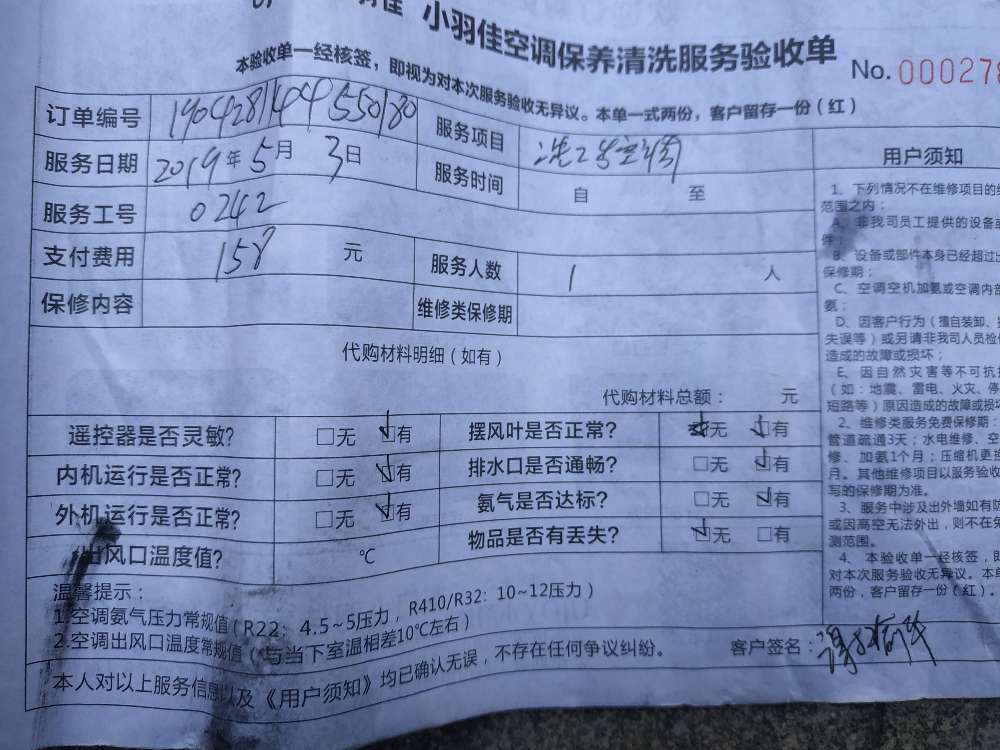 小羽佳空调保养清洗服务验收单
No. 000278
本验收单一经核签，即视为对本次服务验收无异议。本单一式两份，客户留存一份（红）
订单编号 190428144550180 服务项目
服务日期 2019年5月3日 服务时间 自 至
服务工号 0242
支付费用 158 元 服务人数 1 人
保修内容 维修类保修期
代购材料明细（如有）
代购材料总额： 元
遥控器是否灵敏? □无 ☑有 摆风叶是否正常? 无 ☑有
内机运行是否正常? □无 ☑有 排水口是否通畅? □无 ☑有
外机运行是否正常? □无 ☑有 氨气是否达标? □无 ☑有
出风口温度值? ℃ 物品是否有丢失? ☑无 □有
温馨提示：
1.空调氨气压力常规值（R22：4.5~5压力，R410/R32：10~12压力）
2.空调出风口温度常规值（与当下室温相差10℃左右）
本人对以上服务信息以及《用户须知》均已确认无误，不存在任何争议纠纷。 客户签名：
用户须知
1、下列情况不在维修项目的
范围之内：
A、非我司员工提供的设备或
件；
B、设备或部件本身已经超过
保修期；
C、空调空机加氨或空调内部
氨；
D、因客户行为（擅自装卸、
失误等）或另请非我司人员检
造成的故障或损坏；
E、因自然灾害等不可抗
（如：地震、雷电、火灾、停
短路等）原因造成的故障或损坏
2、维修类服务免费保修期：
管道疏通3天；水电维修、空
修、加氨1个月；压缩机更换
月。其他维修项目以服务验收
写的保修期为准。
3、服务中涉及出外墙如有防
或因高空无法外出，则不在
测范围。
4、本验收单一经核签，即
对本次服务验收无异议。本单
两份，客户留存一份（红）。